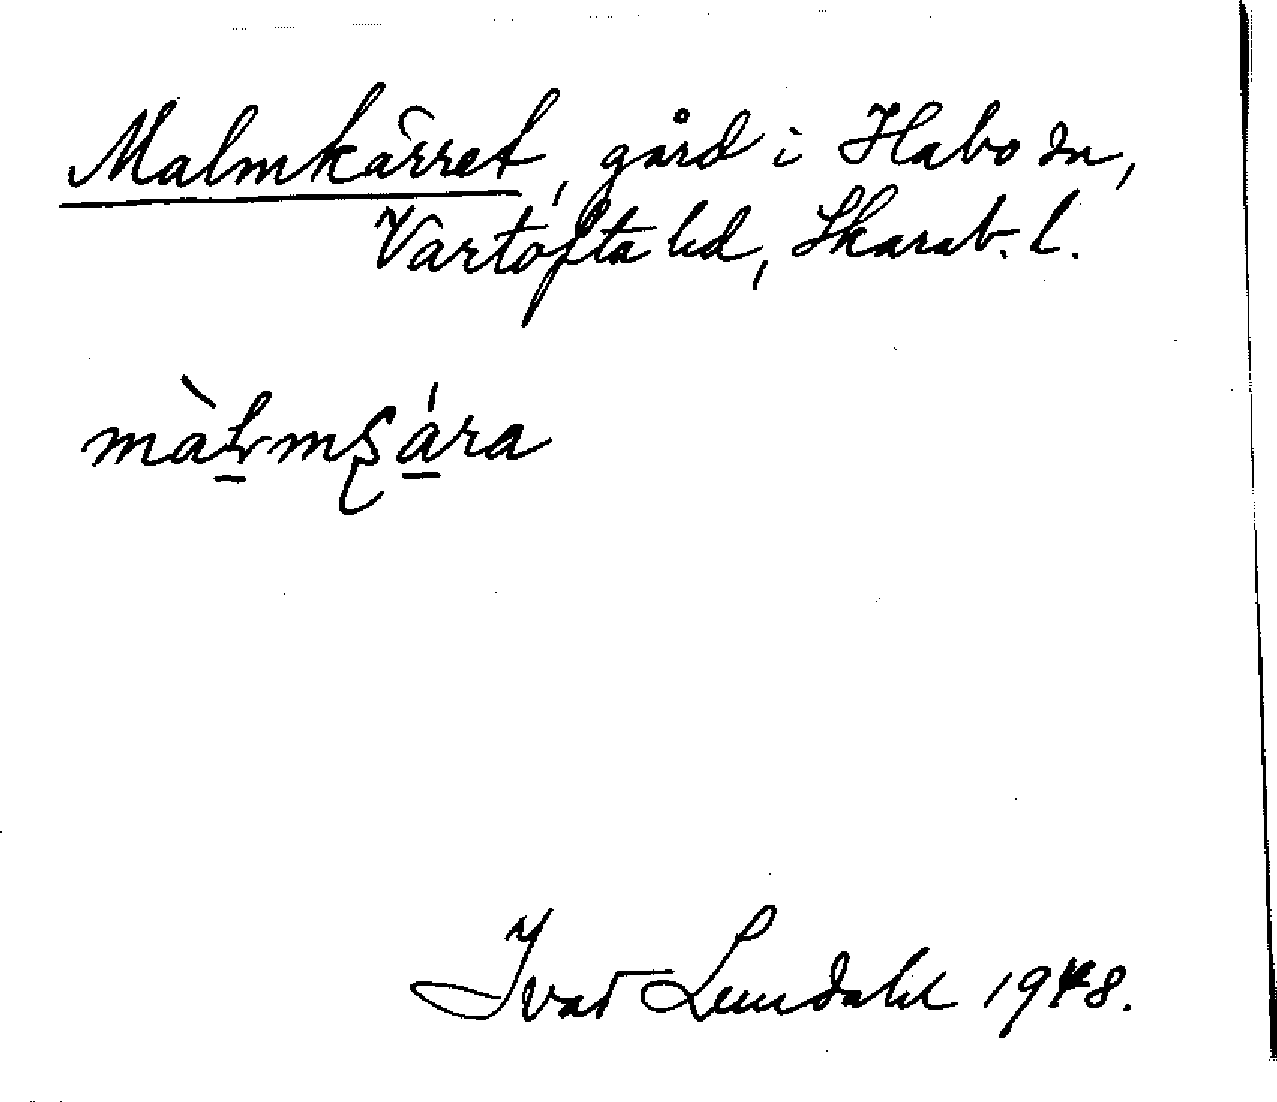 Malmkärret, gård i Habo sn,
Vartofta hd, Skarab. l.
màl̠mʂá̠ra
Ivar Lundahl 1948.